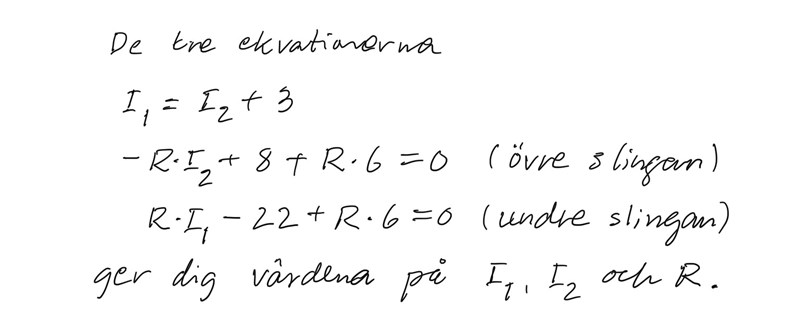 De tre ekvationerna
I₁ = I₂ + 3
-R·I₂ + 8 + R·6 = 0 (övre slingan)
R·I₁ - 22 + R·6 = 0 (undre slingan)
ger dig värdena på I₁, I₂ och R.